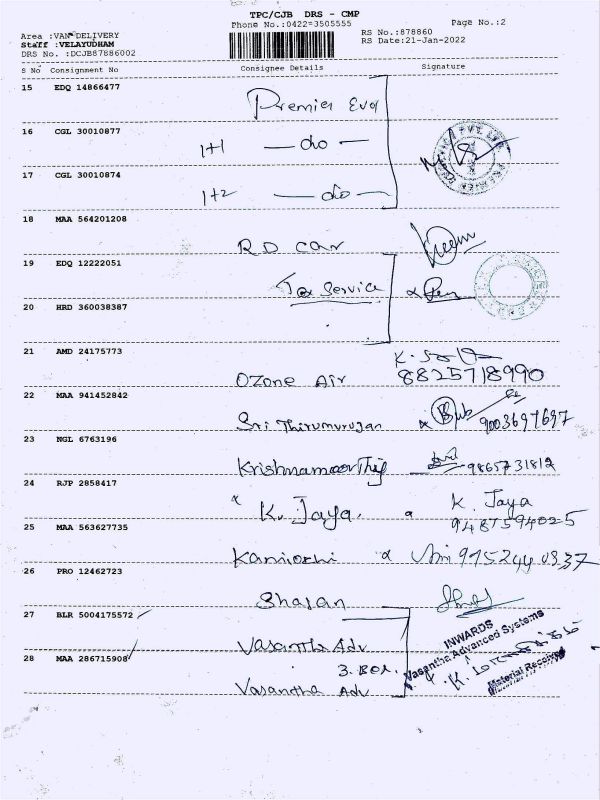 TPC/CJB DRS - CMP
Phone No.:0422=3505555
Page No.:2
Area :VAN DELIVERY
Staff :VELAYUDHAM
DRS No. :DCJB87886002
RS No.:878860
RS Date:21-Jan-2022
S No Consignment No Consignee Details Signature
15 EDQ 14866477
Premier Evol
16 CGL 30010877
1+1 — do —
17 CGL 30010874
1+2 — do —
18 MAA 564201208
R D Car
19 EDQ 12222051
Tax Service
20 HRD 360038387
21 AMD 24175773
Ozone Air 8825718990
22 MAA 941452842
Sri Thirumurugan 9003697697
23 NGL 6763196
Krishnamoorthy 9865731812
24 RJP 2858417
K. Jaya. K. Jaya
9487594025
25 MAA 563627735
26 PRO 12462723
Sharan
27 BLR 5004175572
Vasantha Adv
INWARDS
Vasantha Advanced Systems
28 MAA 286715908
3. Box.
Vasantha Adv
Material Received